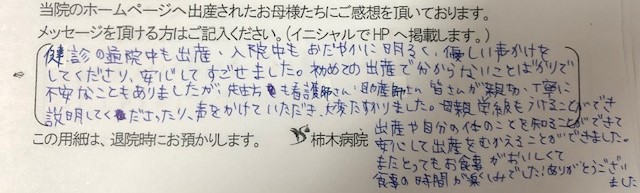 当院のホームページへ出産されたお母様たちにご感想を頂いております。
メッセージを頂ける方はご記入ください。(イニシャルでHPへ掲載します。)
健診の通院中も出産、入院中もおだやかに明るく、優しい声かけを
してくださり、安心してすごせました。初めての出産で分からないことばかりで
不安なこともありましたが、先生方も看護師さん、助産師さん皆さんが親切、丁寧に
説明してくださったり、声をかけていただき、大変たすかりました。母親学級もうけることができ
出産や自分の体のことを知ることができて
この用紙は、退院時にお預かりします。 柿木病院
安心して出産をむかえることができました。
またとってもお食事がおいしくて
食事の時間が楽しみでした!ありがとうござい
ました